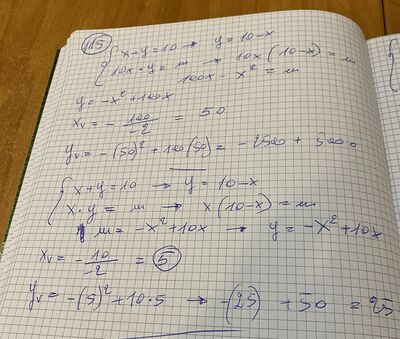 115
x+y=10 → y = 10-x
10x·y = m → 10x(10-x) = m
100x - x² = m
y = -x² + 100x
xv = - 100/-2 = 50
yv = -(50)² + 100(50) = - 2500 + 5000
x+y=10 → y = 10-x
x·y = m → x(10-x) = m
m = -x² + 10x → y = -x² + 10x
xv = - 10/-2 = 5
yv = -(5)² + 10·5 → -(25) + 50 = 25